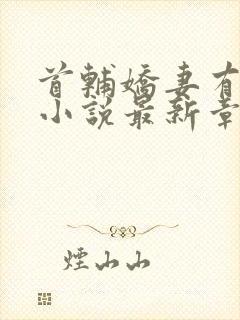 首輔嬌妻有
小說最新章
煙山山